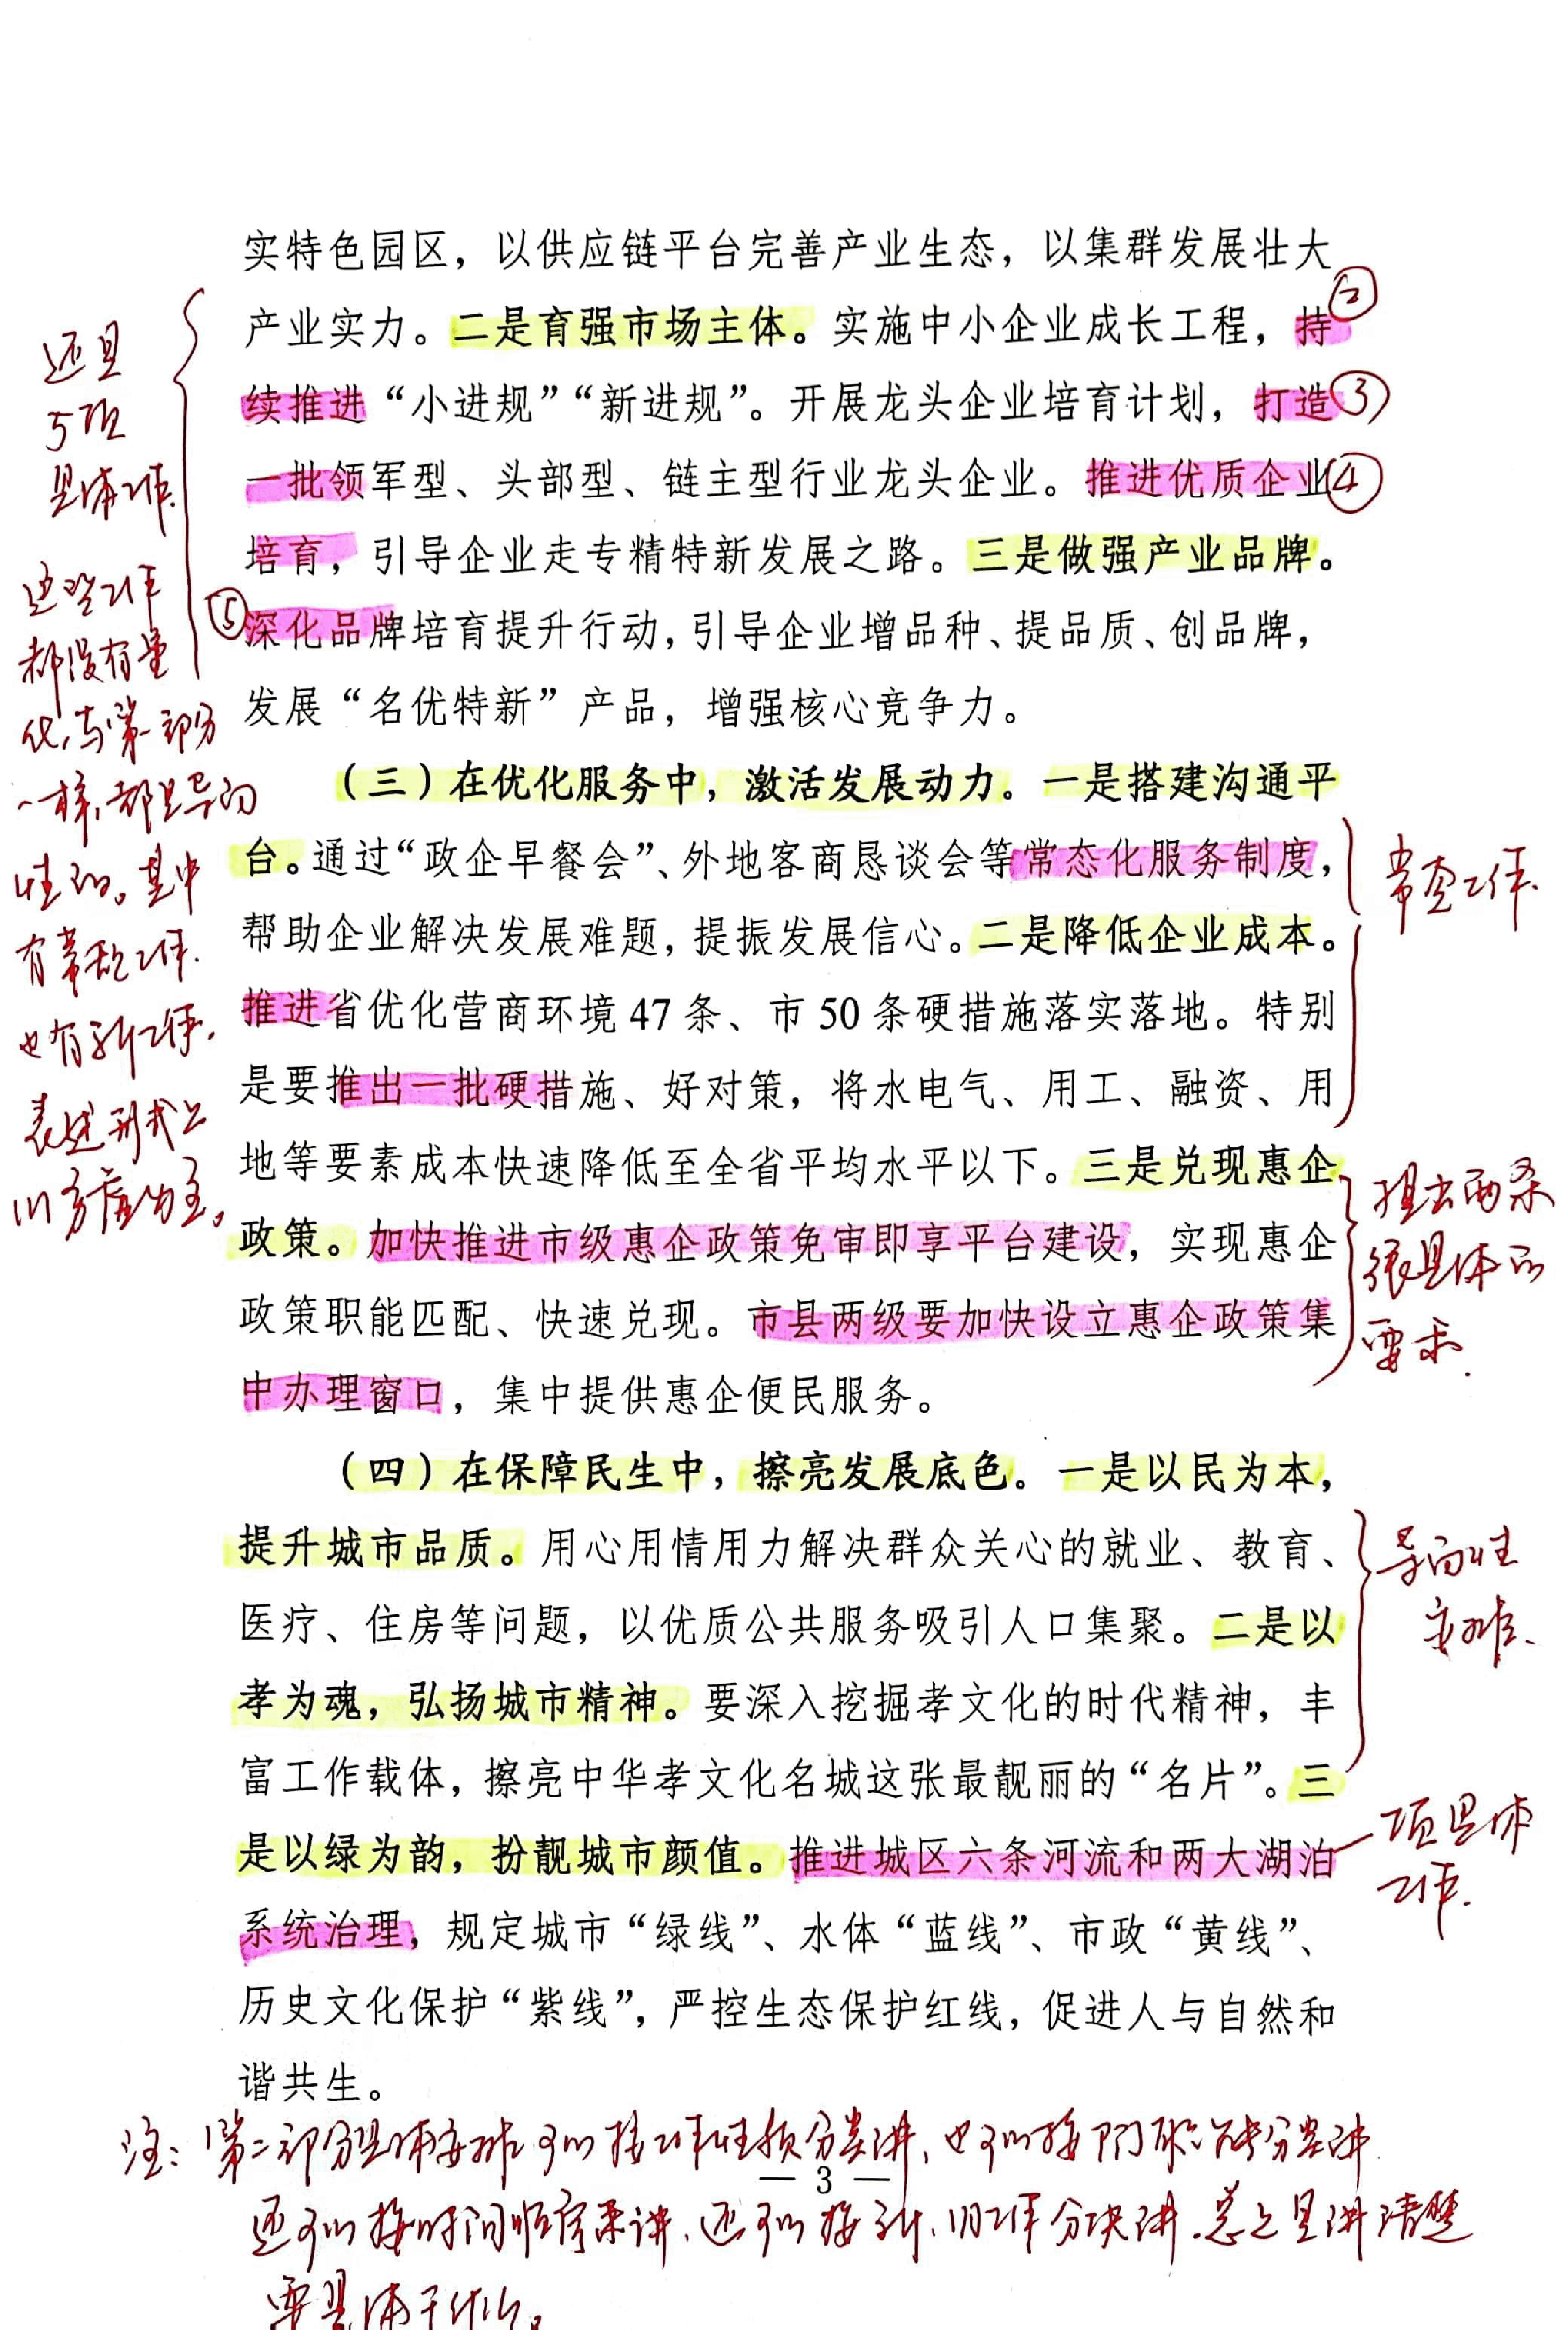 实特色园区，以供应链平台完善产业生态，以集群发展壮大
②
产业实力。二是育强市场主体。实施中小企业成长工程，持
续推进“小进规”“新进规”。开展龙头企业培育计划，打造③
一批领军型、头部型、链主型行业龙头企业。推进优质企业④
培育，引导企业走专精特新发展之路。三是做强产业品牌。
⑤深化品牌培育提升行动，引导企业增品种、提品质、创品牌，
发展“名优特新”产品，增强核心竞争力。
还是
5项
具体工作.
这些工作
都没有量
化,与第一部分
一样,都是导向
性的。其中
有常态工作.
也有新工作.
表述形式上
以务虚为主。
（三）在优化服务中，激活发展动力。一是搭建沟通平
台。通过“政企早餐会”、外地客商恳谈会等常态化服务制度，
帮助企业解决发展难题，提振发展信心。二是降低企业成本。
推进省优化营商环境 47 条、市 50 条硬措施落实落地。特别
是要推出一批硬措施、好对策，将水电气、用工、融资、用
地等要素成本快速降低至全省平均水平以下。三是兑现惠企
政策。加快推进市级惠企政策免审即享平台建设，实现惠企
政策职能匹配、快速兑现。市县两级要加快设立惠企政策集
中办理窗口，集中提供惠企便民服务。
常态工作.
提出两条
很具体的
要求.
（四）在保障民生中，擦亮发展底色。一是以民为本，
提升城市品质。用心用情用力解决群众关心的就业、教育、
医疗、住房等问题，以优质公共服务吸引人口集聚。二是以
孝为魂，弘扬城市精神。要深入挖掘孝文化的时代精神，丰
富工作载体，擦亮中华孝文化名城这张最靓丽的“名片”。三
是以绿为韵，扮靓城市颜值。推进城区六条河流和两大湖泊
系统治理，规定城市“绿线”、水体“蓝线”、市政“黄线”、
历史文化保护“紫线”，严控生态保护红线，促进人与自然和
谐共生。
导向性
安排.
一项具体
工作.
注：第二部分具体安排,可以按工作性质分类讲、也可以按部门职能分类讲
— 3 —
还可以按时间顺序来讲、还可以按新、旧工作分块讲.总之是讲清楚
要具体干什么。